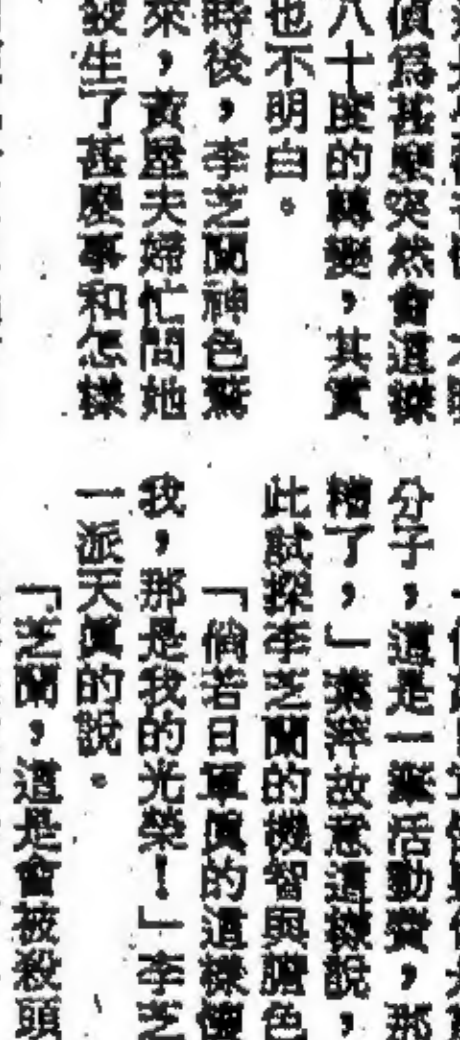 偵爲甚麼突然會這樣
八十度的轉變，其實
也不明白。
時後，李芝蘭神色驚
來，黃屋夫婦忙問她
發生了甚麼事和怎樣
分子，這是一筆活動費，那
糟了，」葉洋故意這樣說，
此試探李芝蘭的機智與膽色
「倘若日軍眞的這樣
我，那是我的光榮！」李芝
一派天眞的說。
「芝蘭，這是會被殺頭